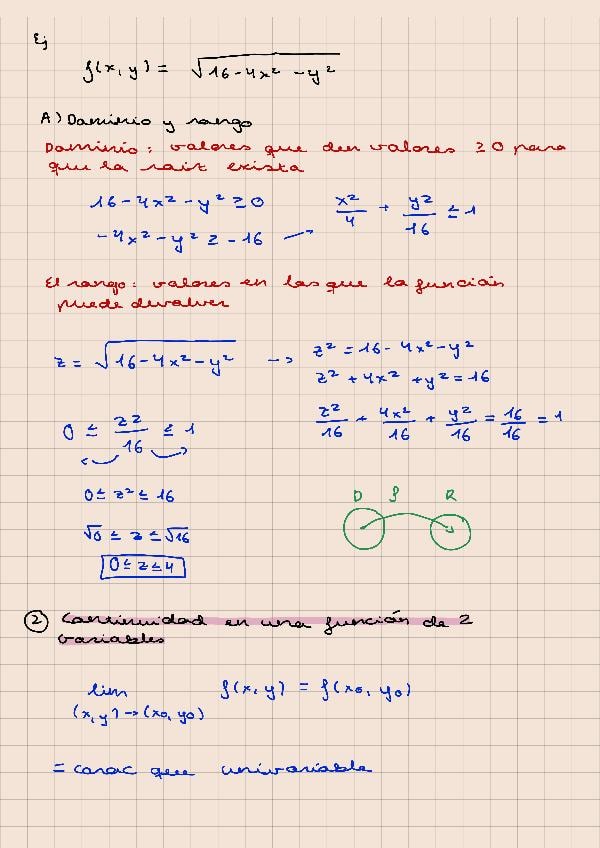 Ej
f(x,y) = √(16-4x² -y²)
A) Dominio y rango
Dominio: valores que den valores ≥0 para
que la raiz exista
16-4x²-y² ≥0
x²/4 + y²/16 ≤ 1
-4x²-y² ≥ -16 →
El rango: valores en los que la función
puede devolver
z = √(16-4x²-y²) --> z² = 16-4x²-y²
z² + 4x² + y² = 16
0 ≤ z²/16 ≤ 1
z²/16 + 4x²/16 + y²/16 = 16/16 = 1
0 ≤ z² ≤ 16
D f R
√0 ≤ z ≤ √16
0 ≤ z ≤ 4
② Continuidad en una función de 2
variables
lim f(x,y) = f(x0, y0)
(x,y) → (x0, y0)
= carac que univariable